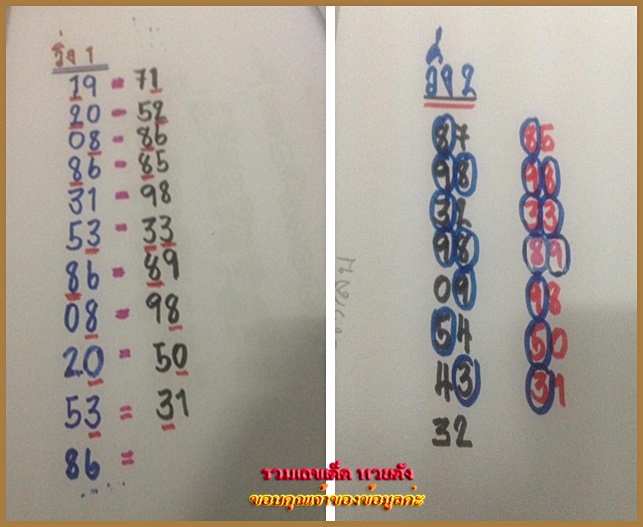 วิ่ง 1
19 = 71
20 = 52
08 = 86
86 = 85
31 = 98
53 = 33
86 = 89
08 = 98
20 = 50
53 = 31
86 =
วิ่ง 2
87 85
98 98
32 33
98 89
09 98
54 50
43 31
32
รวมเลขเด็ด หวยดัง
ขอบคุณเจ้าของข้อมูลค่ะ